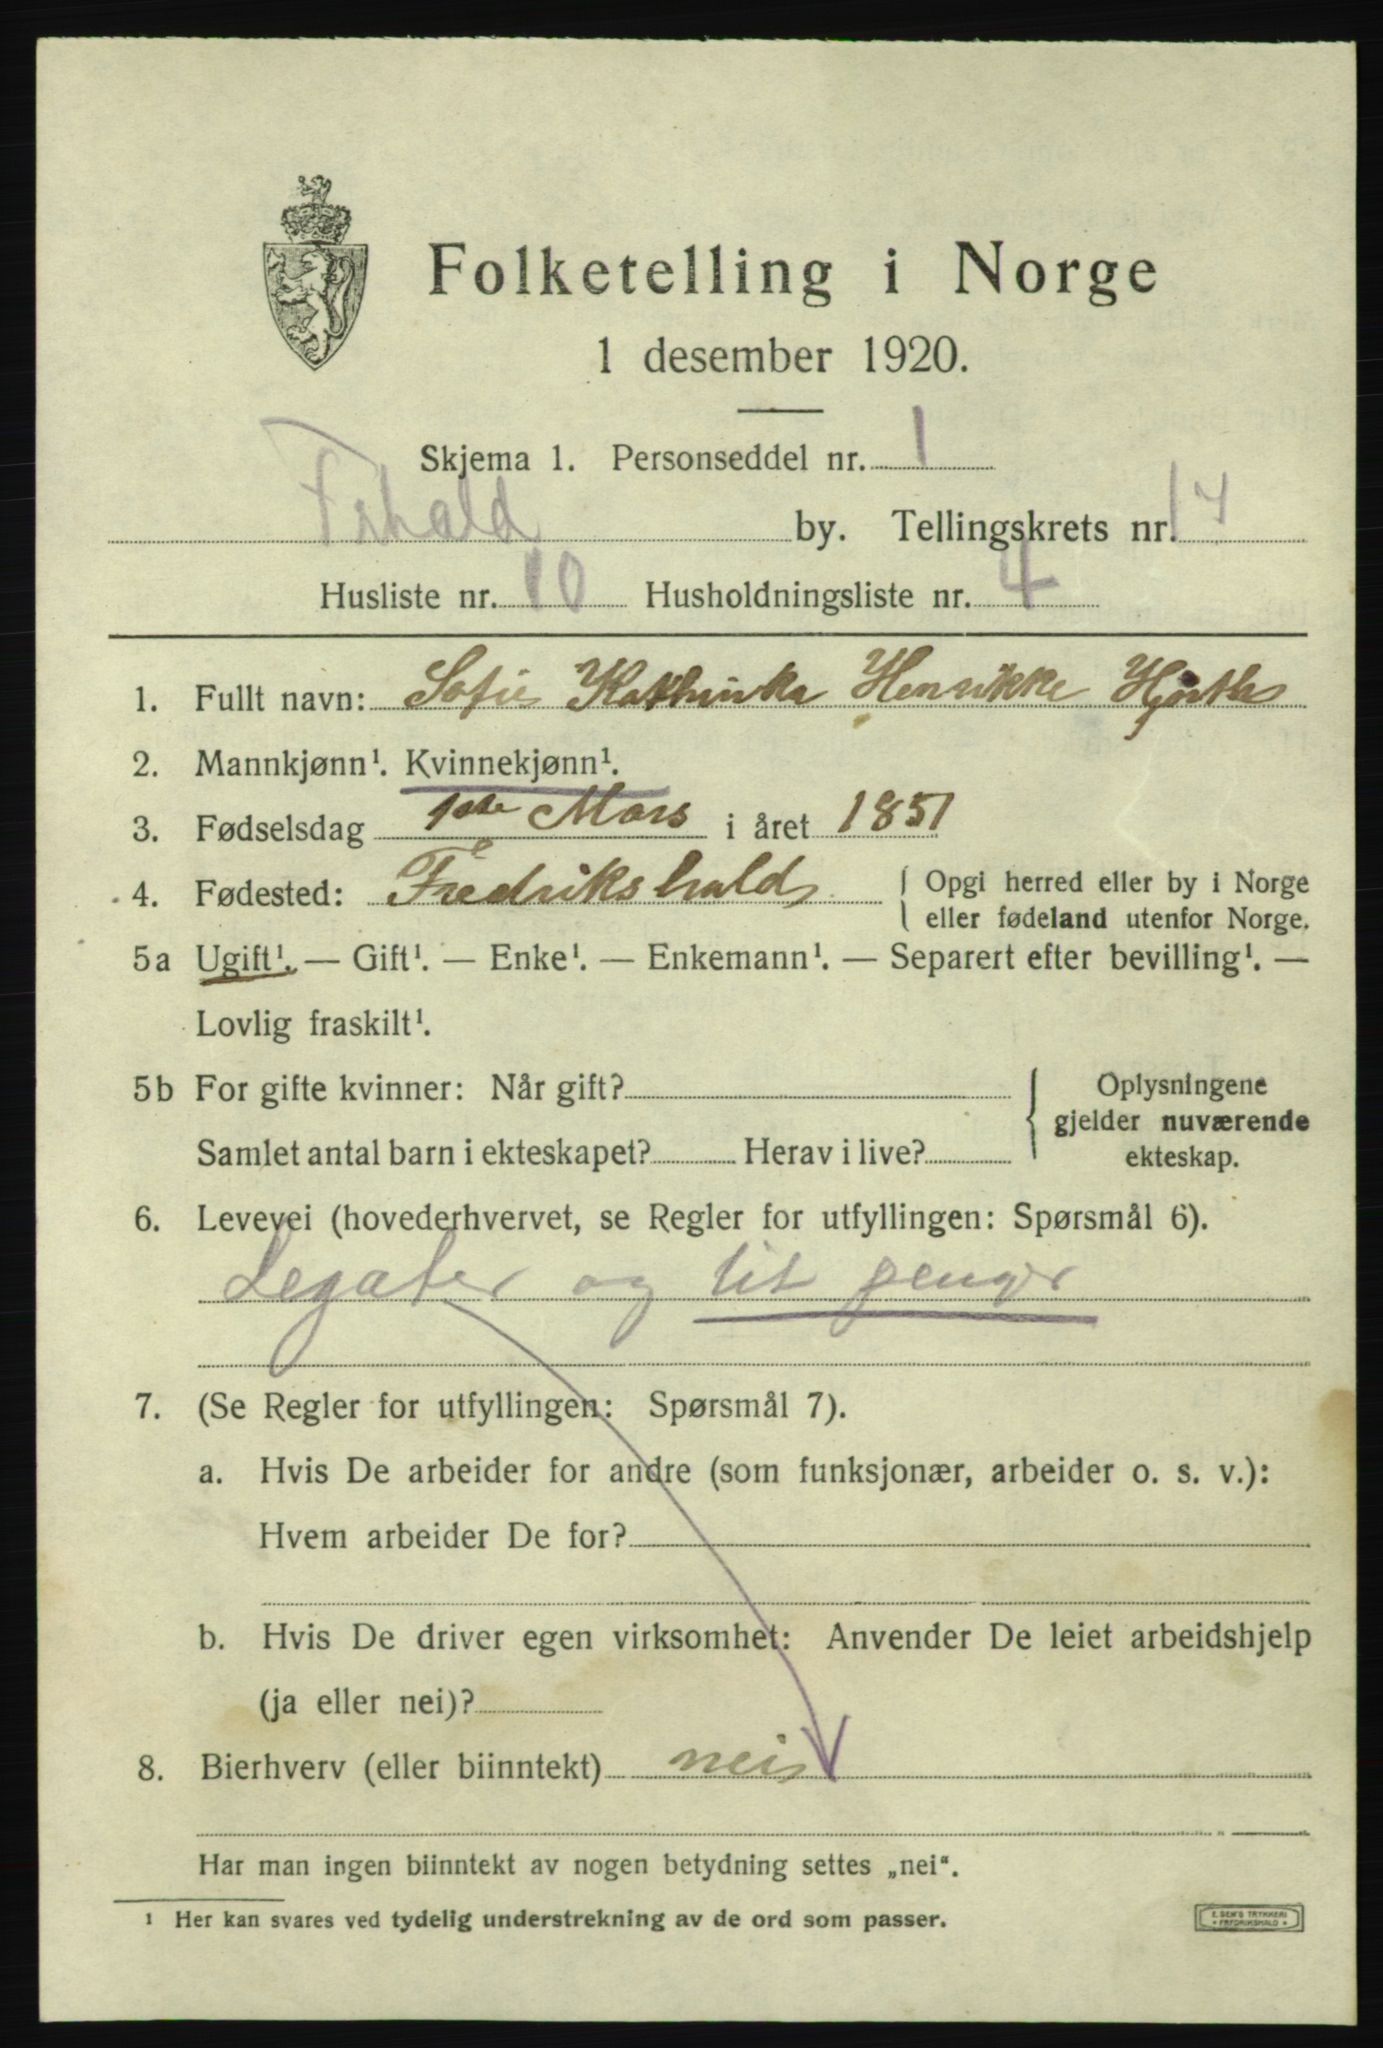 Folketelling i Norge
1 desember 1920.
Skjema 1. Personseddel nr. 1
Frhald by. Tellingskrets nr. 17
Husliste nr. 10 Husholdningsliste nr. 4
1. Fullt navn: Sofie Kathinka Henrikke
2. Mannkjønn¹. Kvinnekjønn¹.
3. Fødselsdag 1ste Mars i året 1851
4. Fødested: Fredrikshald { Opgi herred eller by i Norge
eller fødeland utenfor Norge.
5a Ugift¹. — Gift¹. — Enke¹. — Enkemann¹. — Separert efter bevilling¹. —
Lovlig fraskilt¹.
5b For gifte kvinner: Når gift? { Oplysningene
gjelder nuværende
Samlet antal barn i ekteskapet? Herav i live? ekteskap.
6. Levevei (hovederhvervet, se Regler for utfyllingen: Spørsmål 6).
Legater og litt penger
7. (Se Regler for utfyllingen: Spørsmål 7).
a. Hvis De arbeider for andre (som funksjonær, arbeider o. s. v.):
Hvem arbeider De for?
b. Hvis De driver egen virksomhet: Anvender De leiet arbeidshjelp
(ja eller nei)?
8. Bierhverv (eller biinntekt) nei
Har man ingen biinntekt av nogen betydning settes „nei“.
¹ Her kan svares ved tydelig understrekning av de ord som passer.
E. SEM'S TRYKKERI
• FREDRIKSHALD •